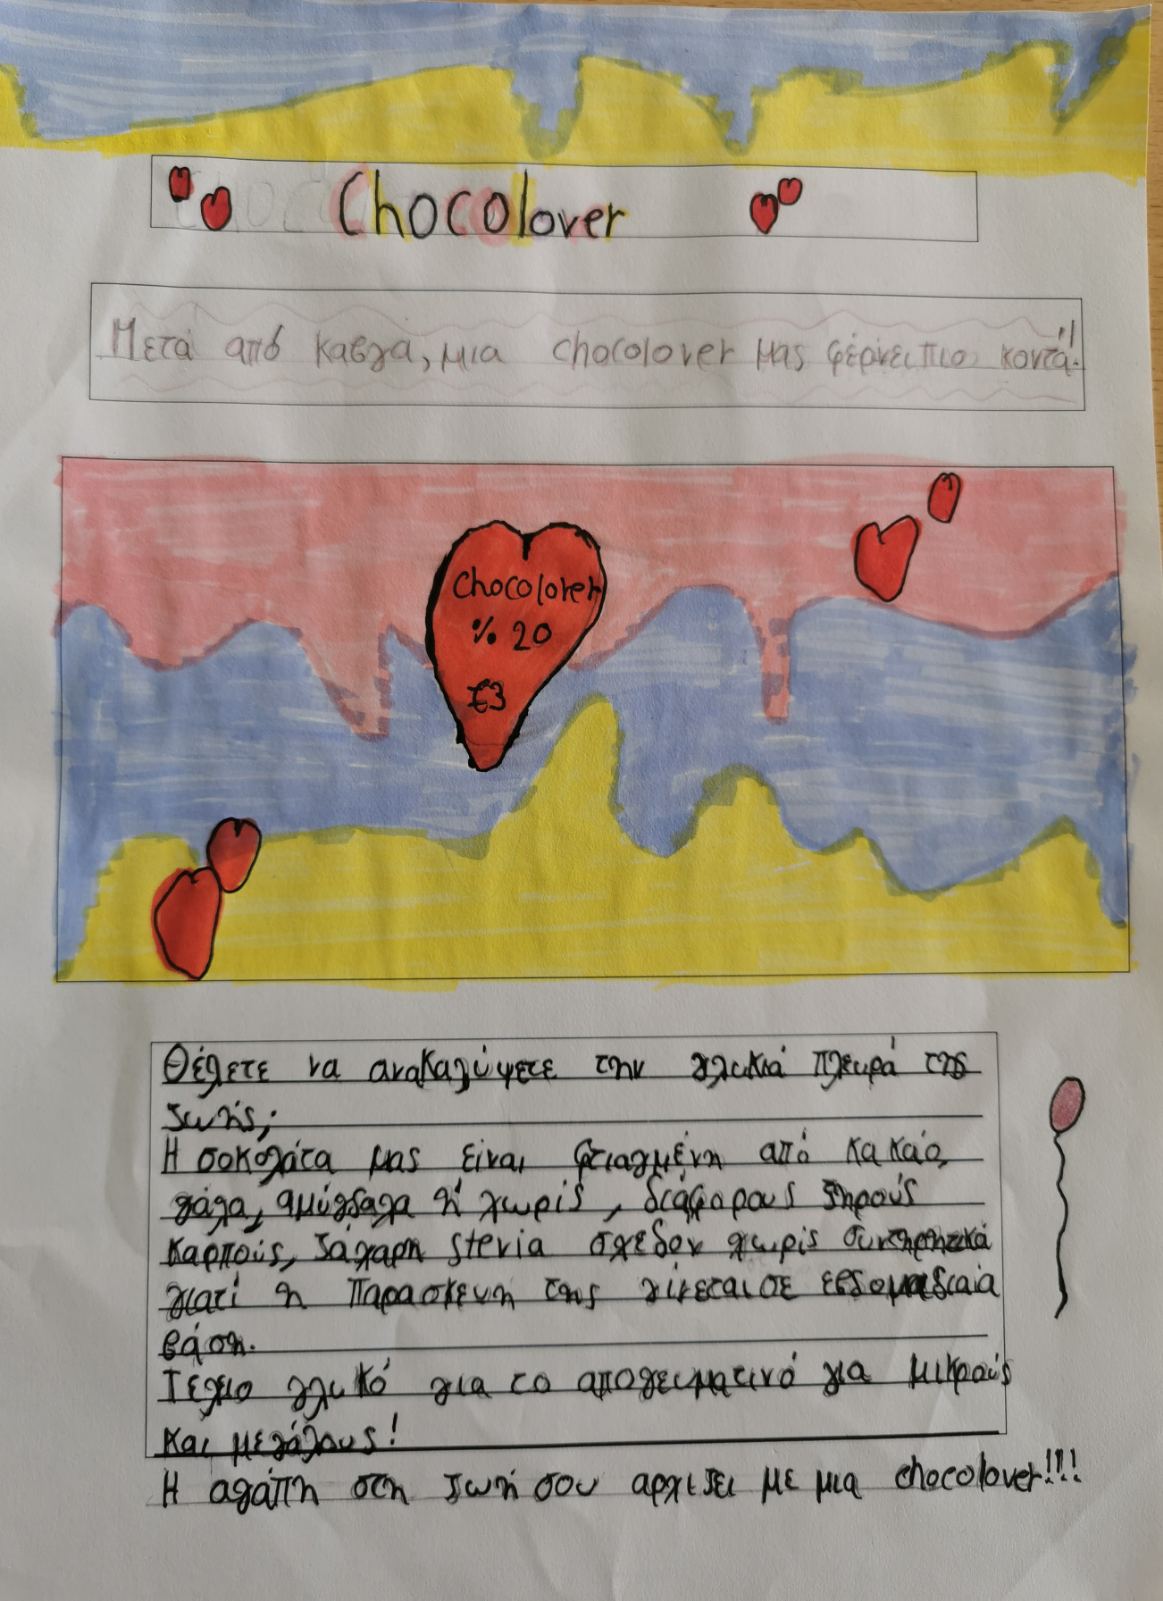 Chocolover
Μετά από καβγα, μια chocolover μας φέρνει πιο κοντά!!
chocolover
% 20
€3
Θέλετε να ανακαλύψετε την γλυκιά πλευρά της
ζωής;
Η σοκολάτα μας είναι φτιαγμένη από κακάο,
γάλα, αμύγδαλα ή χωρίς, διάφορους ξηρούς
καρπούς, ζάχαρη stevia σχεδον χωρίς συντηρητικά
γιατί η παρασκευη της γίνεται σε εβδομαδιαία
βάση.
Τέλειο γλυκό για το απογευματινό για μικρούς
και μεγάλους!
Η αγάπη στη ζωή σου αρχιζει με μια chocolover!!!